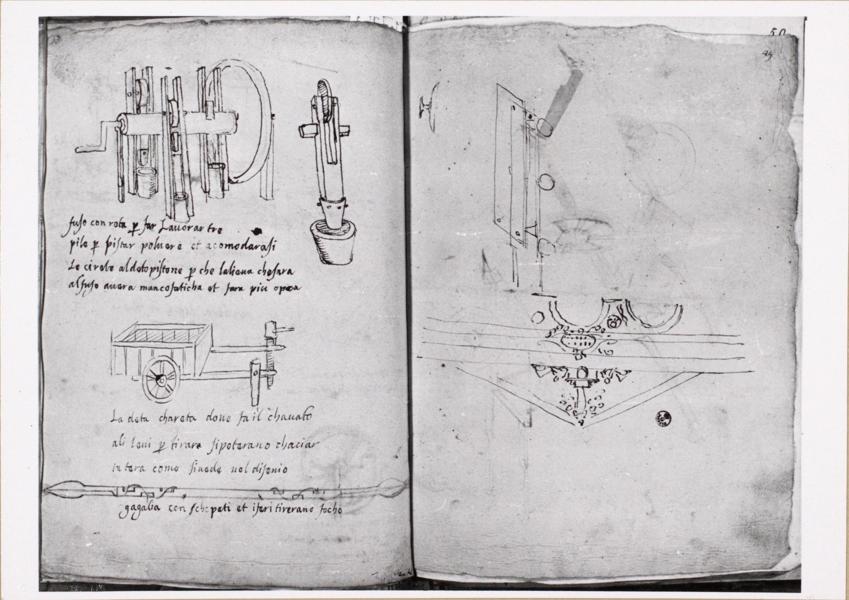 fuso con rota p far Lauorar tre
pile p pistar poluere et acomodarasi
Le cirele al deto pistone p che lalieua che fara
al fuso auera manco faticha et fara piu opera
La deta chareta doue fa il chauato
ali leui p tirare si poterano chaciar
in tera come si uede nel disenio
gagaba con schopeti et iferi tirerano focho
50
49